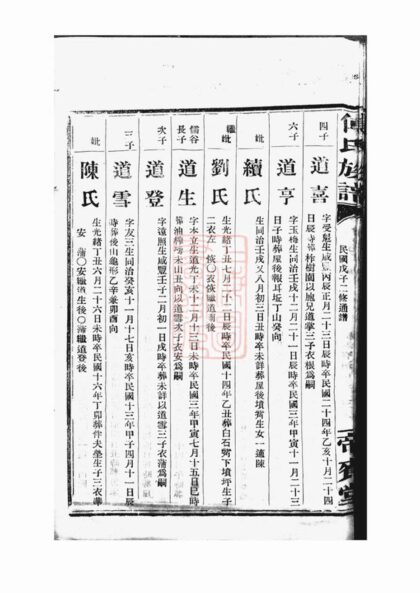 氏族譜
民國戊子二修通譜
四子
道喜
字受魁生咸豐丙辰正月二十三日辰時卒民國二十四年乙亥十月二十四
日辰時葬柞樹園以胞兄道掌三子衣根為嗣
六子
道亨
字玉梅生同治壬戌十二月二十一日辰時卒民國三年甲寅十一月二十三
日子時葬屋後報耳坵丁山癸向
妣
續氏
生同治壬戌又八月初三日丑時卒未詳葬屋後墳旁生女一適陳
繼妣
劉氏
生光緒丁丑七月二十一日辰時卒民國十四年乙丑葬白石劈下墳坪生子
二衣左 恢〇衣恢繼道南後
儒谷
長子
道生
字本立生道光丁未十二月十三日未時卒民國三年甲寅七月十五日巳時
葬油榨塝未山丑向以道雪次子衣安為嗣
次子
道登
字遠照生咸豐壬子二月初一日戌時卒葬未詳以道雪三子衣蒲為嗣
三子
道雪
字友三生同治癸亥十一月十七日亥時卒民國十三年甲子四月十一日辰
時葬後山龜形乙辛兼卯酉向
妣
陳氏
生光緒丁丑六月二十六日未時卒民國十六年丁卯葬伴夫塋生子三衣華
安 蒲〇安繼道生後〇蒲繼道登後